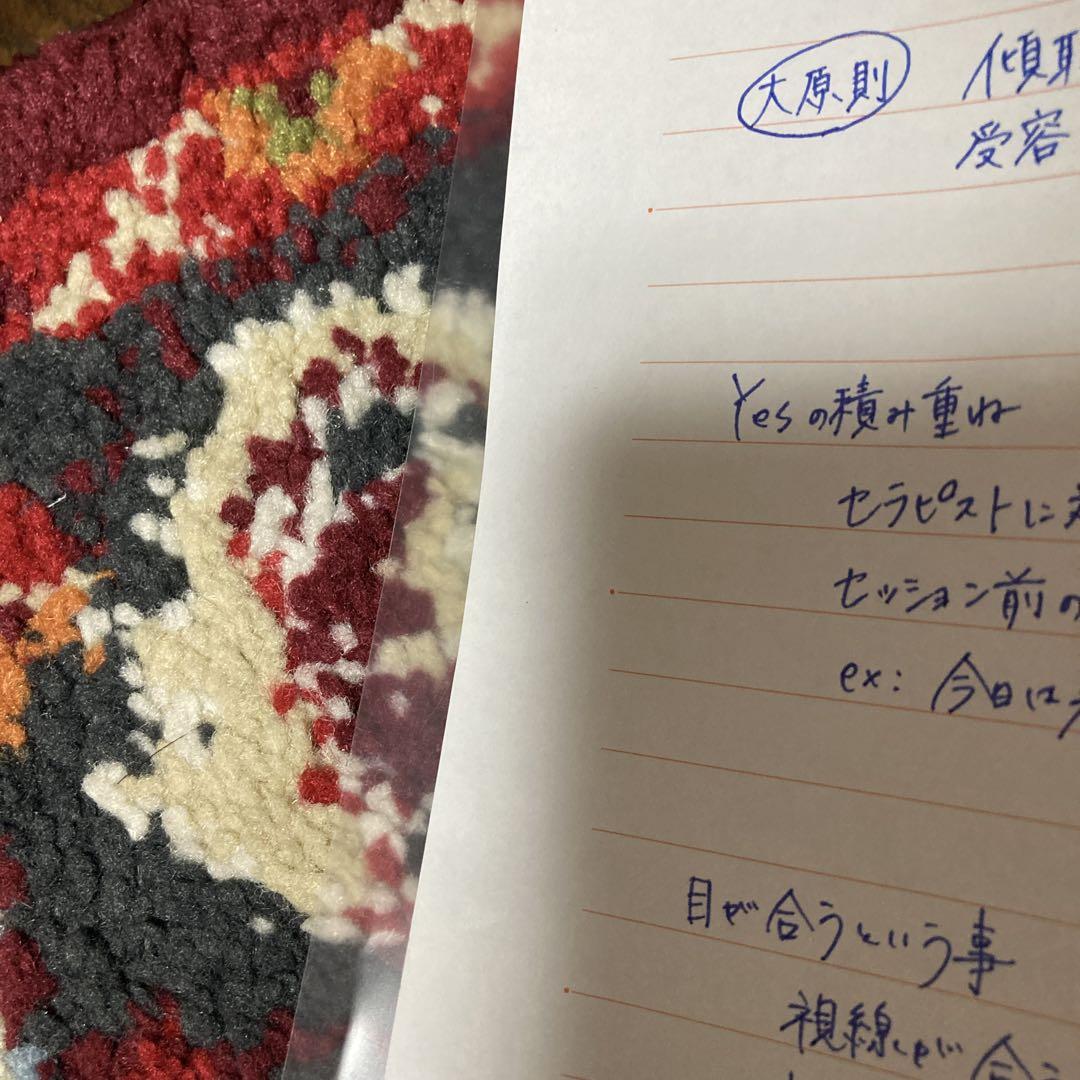 大原則 傾聴
受容
Yesの積み重ね
セラピストに
セッション前の
ex: 今日は
目が合うという事
視線が合う